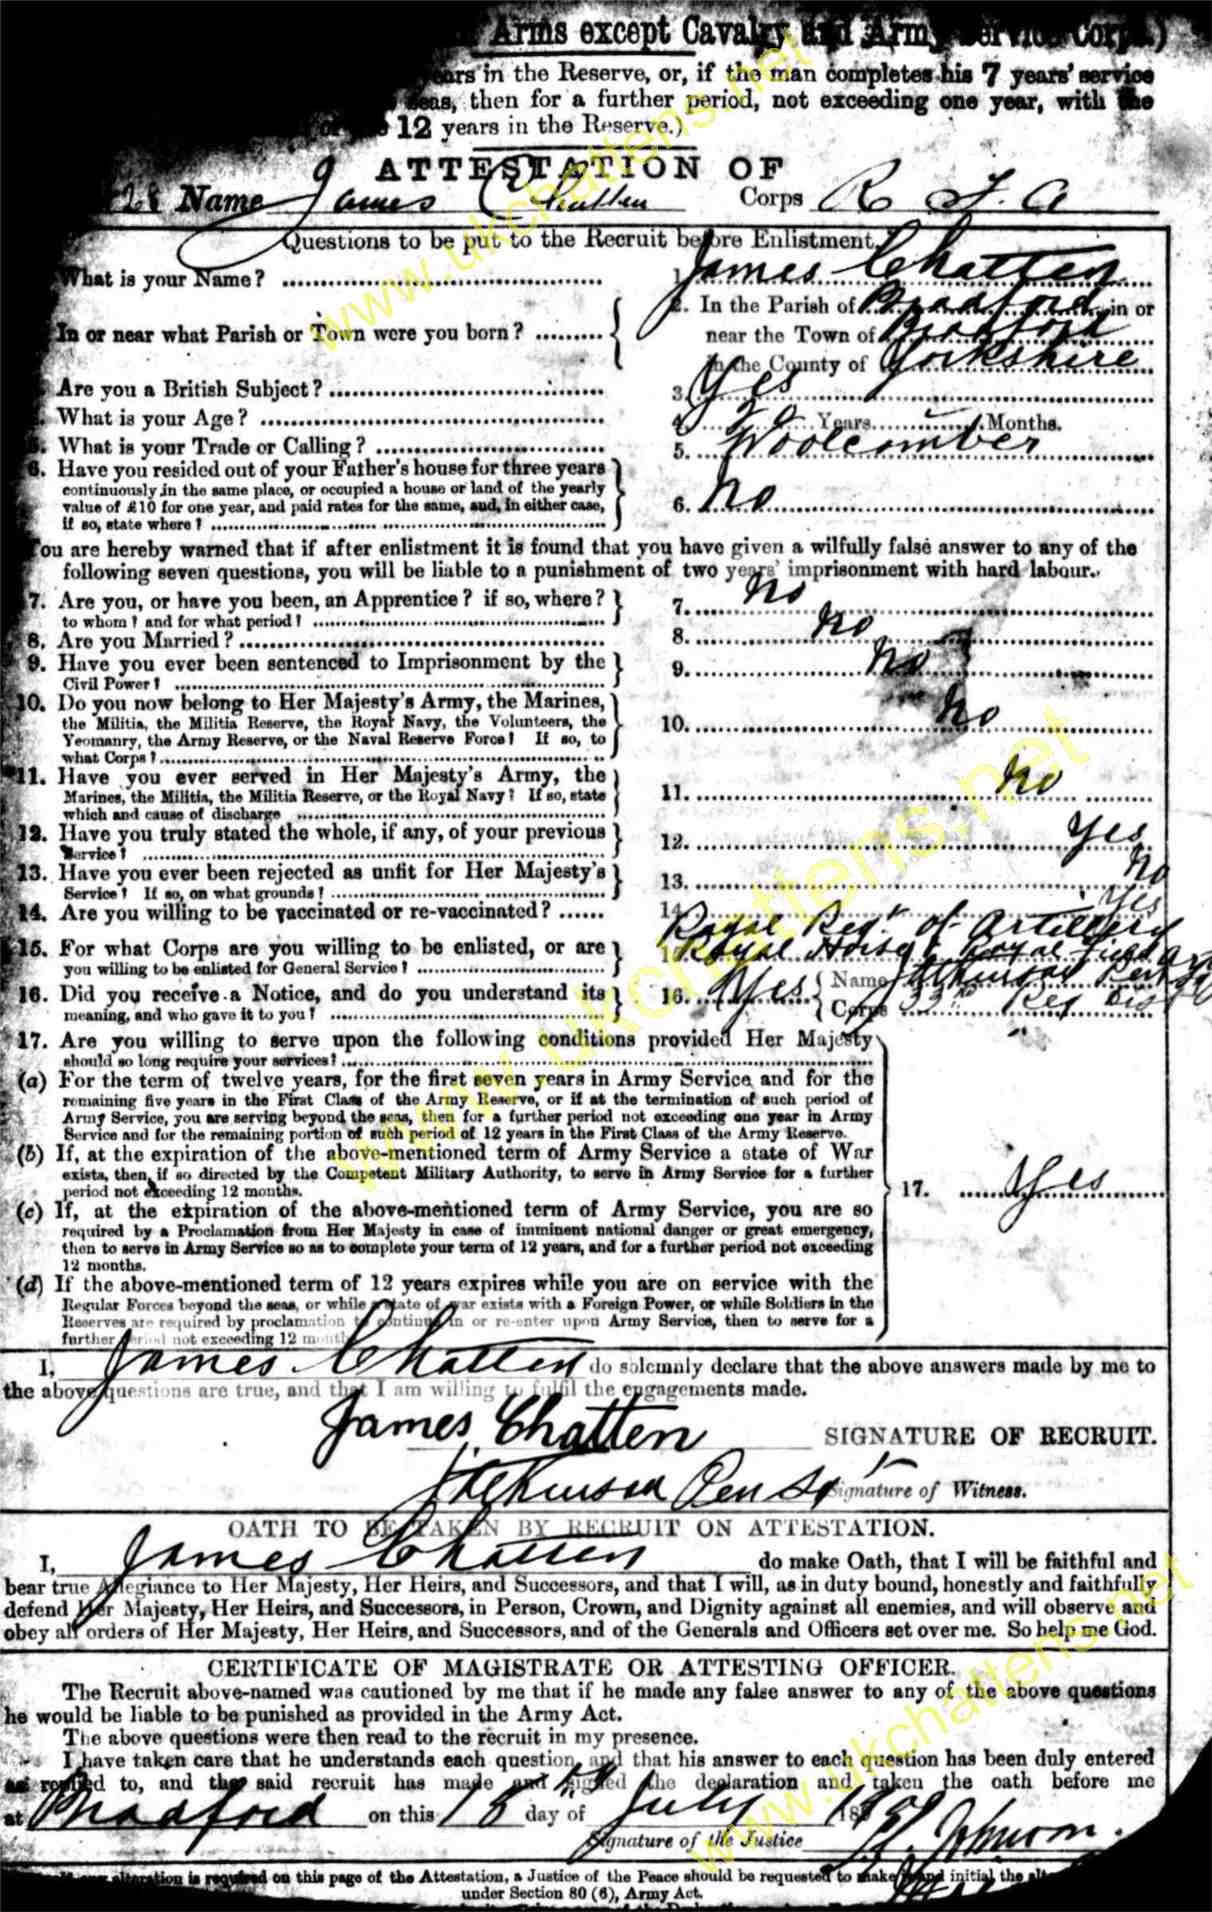 Arms except Cavalry and Army Service Corps.)
years in the Reserve, or, if the man completes his 7 years' service
seas, then for a further period, not exceeding one year, with the
12 years in the Reserve.)
ATTESTATION OF
Name James Chatten Corps R F A
Questions to be put to the Recruit before Enlistment.
What is your Name? 1. James Chatten
In or near what Parish or Town were you born? 2. In the Parish of Bradford in or
near the Town of Bradford
in the County of Yorkshire
Are you a British Subject? 3. Yes
What is your Age? 4. 20 Years Months.
5. What is your Trade or Calling? 5. Woolcomber
6. Have you resided out of your Father's house for three years
continuously in the same place, or occupied a house or land of the yearly
value of £10 for one year, and paid rates for the same, and, in either case,
if so, state where? 6. No
You are hereby warned that if after enlistment it is found that you have given a wilfully false answer to any of the
following seven questions, you will be liable to a punishment of two years' imprisonment with hard labour.
7. Are you, or have you been, an Apprentice? if so, where?
to whom? and for what period? 7. No
8. Are you Married? 8. No
9. Have you ever been sentenced to Imprisonment by the
Civil Power? 9. No
10. Do you now belong to Her Majesty's Army, the Marines,
the Militia, the Militia Reserve, the Royal Navy, the Volunteers, the
Yeomanry, the Army Reserve, or the Naval Reserve Force? If so, to
what Corps? 10. No
11. Have you ever served in Her Majesty's Army, the
Marines, the Militia, the Militia Reserve, or the Royal Navy? If so, state
which and cause of discharge 11. No
12. Have you truly stated the whole, if any, of your previous
Service? 12. Yes
13. Have you ever been rejected as unfit for Her Majesty's
Service? If so, on what grounds? 13. No
14. Are you willing to be vaccinated or re-vaccinated? 14. Yes
15. For what Corps are you willing to be enlisted, or are
you willing to be enlisted for General Service? Royal Regt of Artillery
Royal Horse & Royal Field Art
16. Did you receive a Notice, and do you understand its
meaning, and who gave it to you? 16. Yes Name J Atkinson
Corps 33rd Reg Dist
17. Are you willing to serve upon the following conditions provided Her Majesty
should so long require your services?
(a) For the term of twelve years, for the first seven years in Army Service and for the
remaining five years in the First Class of the Army Reserve, or if at the termination of such period of
Army Service, you are serving beyond the seas, then for a further period not exceeding one year in Army
Service and for the remaining portion of such period of 12 years in the First Class of the Army Reserve.
(b) If, at the expiration of the above-mentioned term of Army Service a state of War
exists, then, if so directed by the Competent Military Authority, to serve in Army Service for a further
period not exceeding 12 months. 17. Yes
(c) If, at the expiration of the above-mentioned term of Army Service, you are so
required by a Proclamation from Her Majesty in case of imminent national danger or great emergency,
then to serve in Army Service so as to complete your term of 12 years, and for a further period not exceeding
12 months.
(d) If the above-mentioned term of 12 years expires while you are on service with the
Regular Forces beyond the seas, or while a state of war exists with a Foreign Power, or while Soldiers in the
Reserves are required by proclamation to continue in or re-enter upon Army Service, then to serve for a
further period not exceeding 12 months
I, James Chatten do solemnly declare that the above answers made by me to
the above questions are true, and that I am willing to fulfil the engagements made.
James Chatten SIGNATURE OF RECRUIT.
J Atkinson Pen Sgt Signature of Witness.
OATH TO BE TAKEN BY RECRUIT ON ATTESTATION.
I, James Chatten do make Oath, that I will be faithful and
bear true Allegiance to Her Majesty, Her Heirs, and Successors, and that I will, as in duty bound, honestly and faithfully
defend Her Majesty, Her Heirs, and Successors, in Person, Crown, and Dignity against all enemies, and will observe and
obey all orders of Her Majesty, Her Heirs, and Successors, and of the Generals and Officers set over me. So help me God.
CERTIFICATE OF MAGISTRATE OR ATTESTING OFFICER.
The Recruit above-named was cautioned by me that if he made any false answer to any of the above questions
he would be liable to be punished as provided in the Army Act.
The above questions were then read to the recruit in my presence.
I have taken care that he understands each question, and that his answer to each question has been duly entered
as replied to, and the said recruit has made and signed the declaration and taken the oath before me
at Bradford on this 18 day of July
Signature of the Justice Johnson.
alteration is required on this page of the Attestation, a Justice of the Peace should be requested to make and initial the
under Section 80 (6), Army Act.
www.ukchattens.net
www.ukchattens.net
www.ukchattens.net